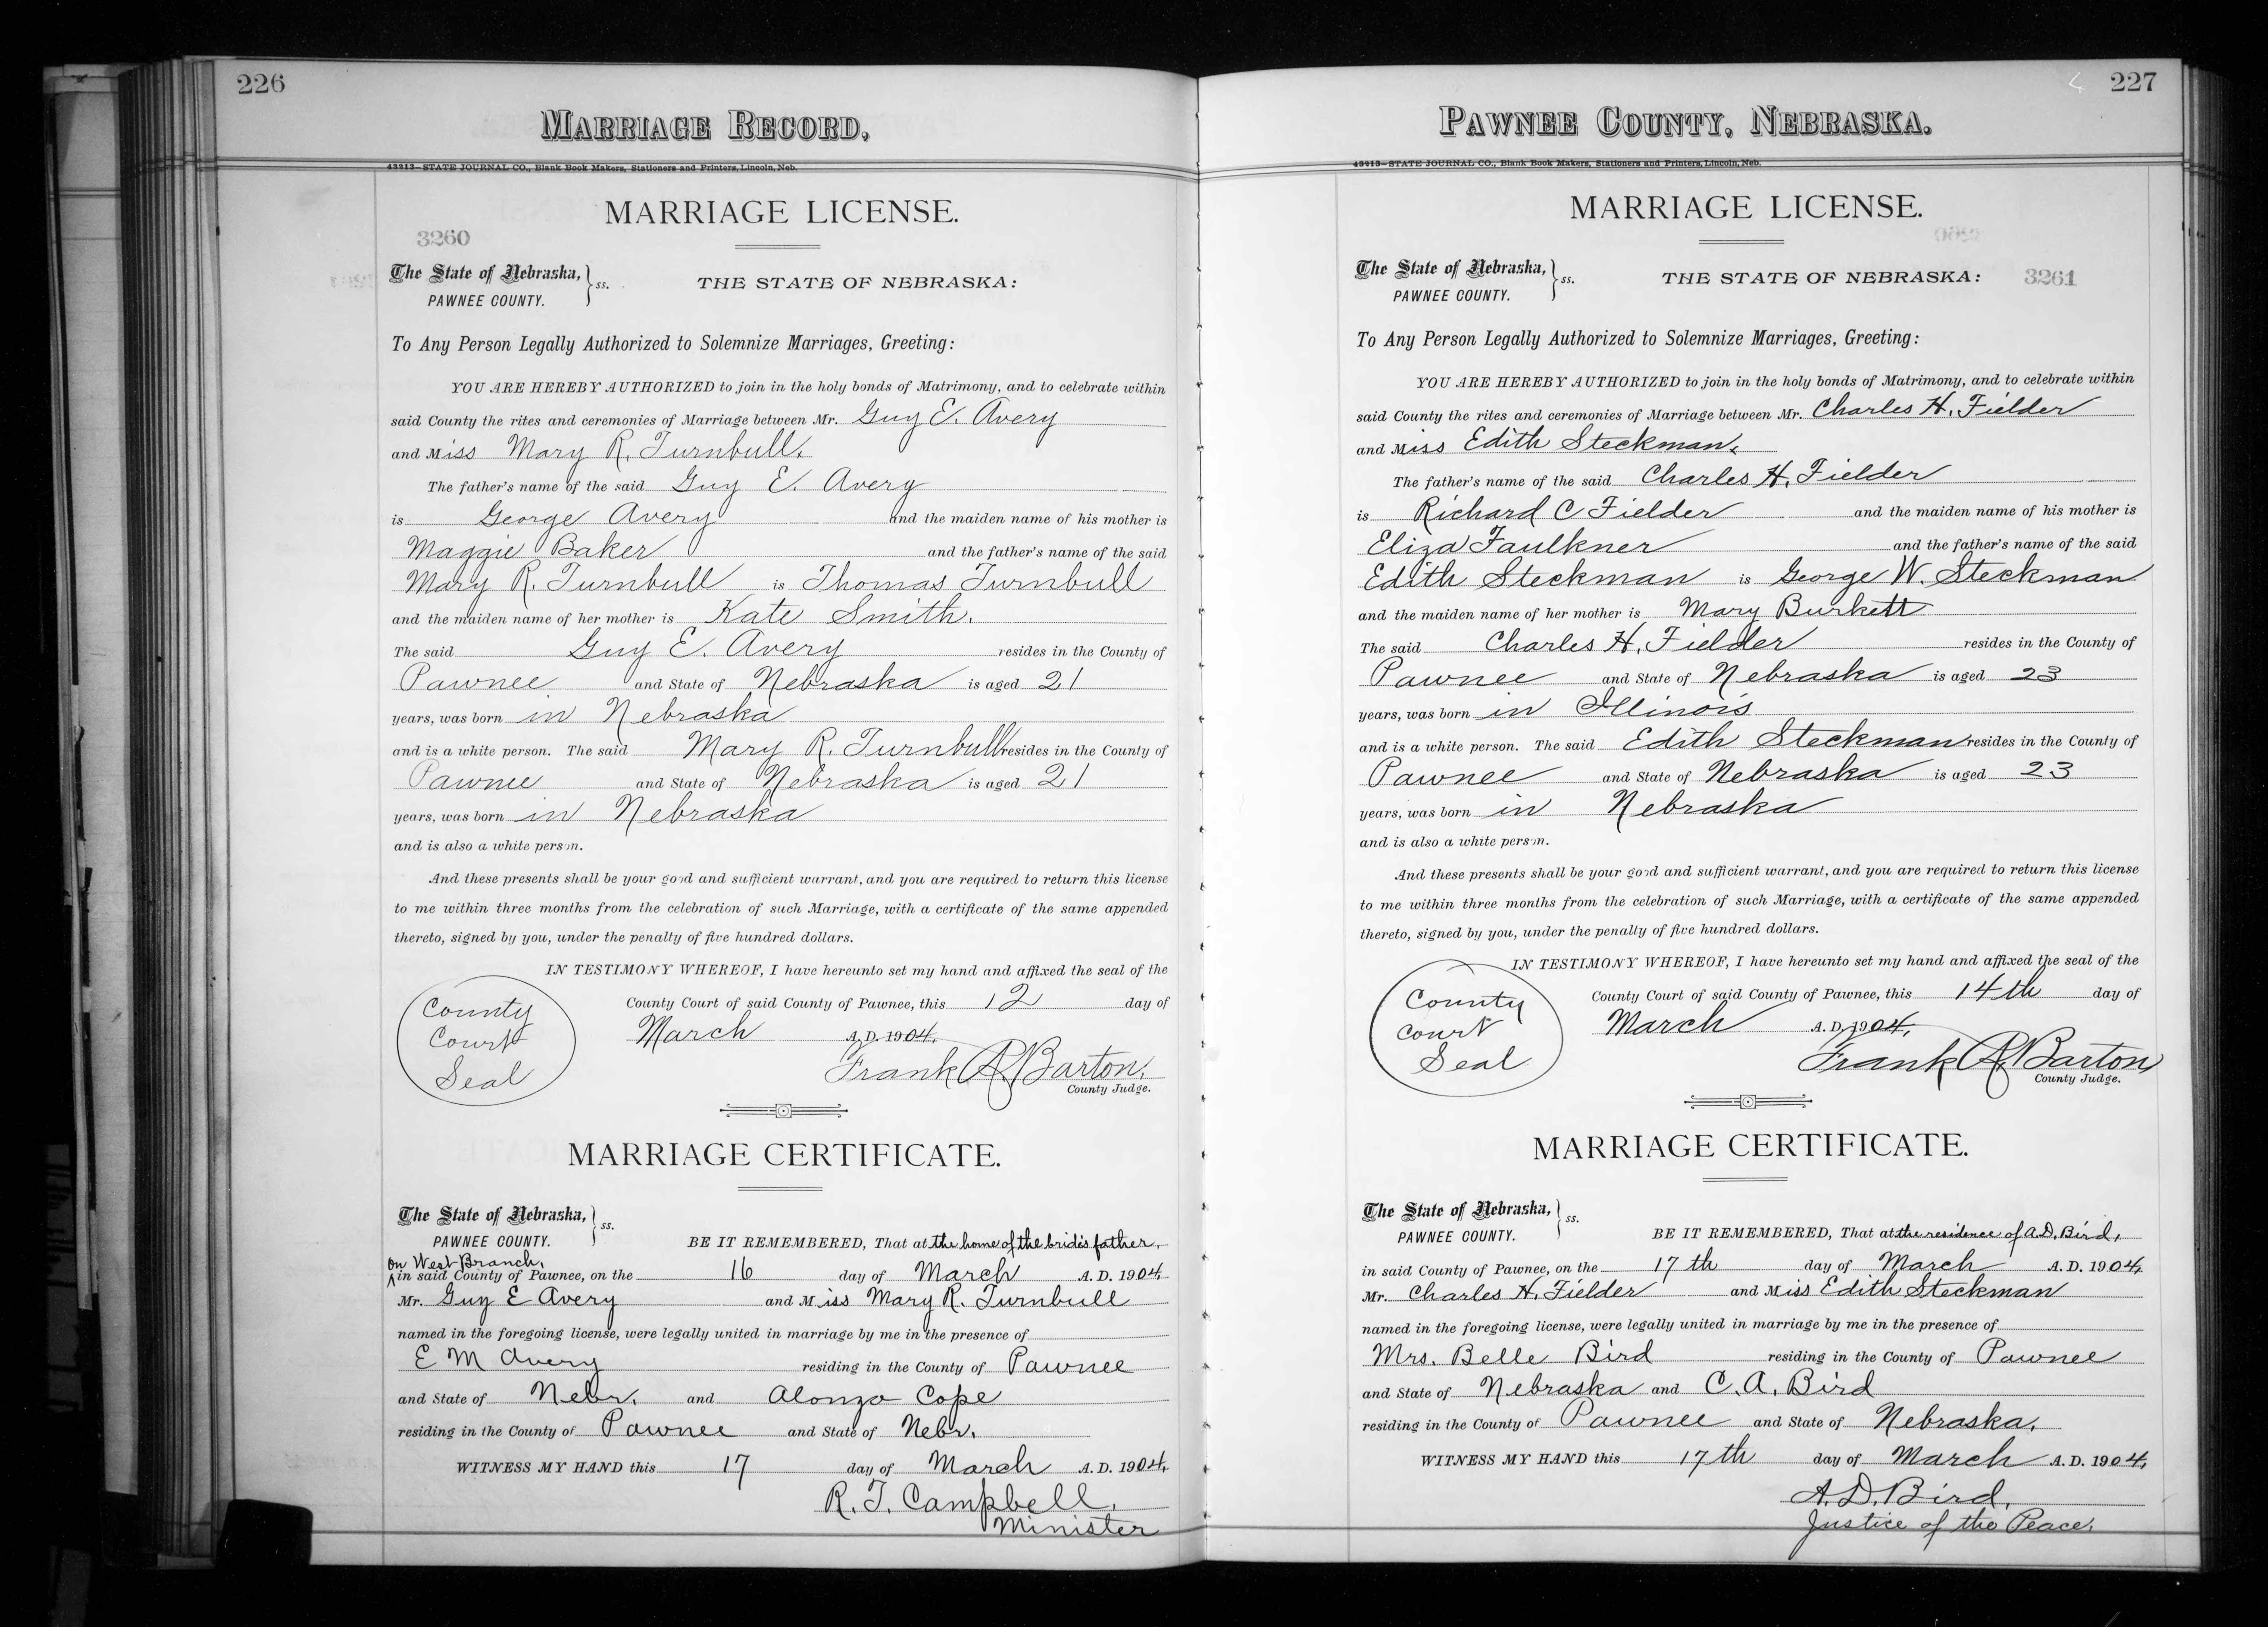 226
MARRIAGE RECORD,
43213—STATE JOURNAL CO., Blank Book Makers, Stationers and Printers, Lincoln, Neb.
MARRIAGE LICENSE.
3260
The State of Nebraska, } ss.
PAWNEE COUNTY.
THE STATE OF NEBRASKA:
To Any Person Legally Authorized to Solemnize Marriages, Greeting:
YOU ARE HEREBY AUTHORIZED to join in the holy bonds of Matrimony, and to celebrate within
said County the rites and ceremonies of Marriage between Mr. Guy E. Avery
and Miss Mary R. Turnbull.
The father's name of the said Guy E. Avery
is George Avery and the maiden name of his mother is
Maggie Baker and the father's name of the said
Mary R. Turnbull is Thomas Turnbull
and the maiden name of her mother is Kate Smith.
The said Guy E. Avery resides in the County of
Pawnee and State of Nebraska is aged 21
years, was born in Nebraska
and is a white person. The said Mary R. Turnbull resides in the County of
Pawnee and State of Nebraska is aged 21
years, was born in Nebraska
and is also a white person.
And these presents shall be your good and sufficient warrant, and you are required to return this license
to me within three months from the celebration of such Marriage, with a certificate of the same appended
thereto, signed by you, under the penalty of five hundred dollars.
IN TESTIMONY WHEREOF, I have hereunto set my hand and affixed the seal of the
County Court of said County of Pawnee, this 12 day of
March A.D. 1904.
County
Court
Seal
Frank A. Barton,
County Judge.
MARRIAGE CERTIFICATE.
The State of Nebraska, } ss.
PAWNEE COUNTY.
BE IT REMEMBERED, That at the home of the bride's father,
on West Branch,
in said County of Pawnee, on the 16 day of March A.D. 1904,
Mr. Guy E Avery and Miss Mary R. Turnbull
named in the foregoing license, were legally united in marriage by me in the presence of
E M Avery residing in the County of Pawnee
and State of Nebr. and Alonzo Cope
residing in the County of Pawnee and State of Nebr.
WITNESS MY HAND this 17 day of March A.D. 1904,
R. T. Campbell,
Minister
227
PAWNEE COUNTY, NEBRASKA.
43213—STATE JOURNAL CO., Blank Book Makers, Stationers and Printers, Lincoln, Neb.
MARRIAGE LICENSE.
The State of Nebraska, } ss.
PAWNEE COUNTY.
THE STATE OF NEBRASKA:
3261
To Any Person Legally Authorized to Solemnize Marriages, Greeting:
YOU ARE HEREBY AUTHORIZED to join in the holy bonds of Matrimony, and to celebrate within
said County the rites and ceremonies of Marriage between Mr. Charles H. Fielder
and Miss Edith Steckman,
The father's name of the said Charles H. Fielder
is Richard C Fielder and the maiden name of his mother is
Eliza Faulkner and the father's name of the said
Edith Steckman is George W. Steckman
and the maiden name of her mother is Mary Burkett
The said Charles H. Fielder resides in the County of
Pawnee and State of Nebraska is aged 23
years, was born in Illinois
and is a white person. The said Edith Steckman resides in the County of
Pawnee and State of Nebraska is aged 23
years, was born in Nebraska
and is also a white person.
And these presents shall be your good and sufficient warrant, and you are required to return this license
to me within three months from the celebration of such Marriage, with a certificate of the same appended
thereto, signed by you, under the penalty of five hundred dollars.
IN TESTIMONY WHEREOF, I have hereunto set my hand and affixed the seal of the
County Court of said County of Pawnee, this 14th day of
March A.D. 1904.
County
Court
Seal
Frank A. Barton,
County Judge.
MARRIAGE CERTIFICATE.
The State of Nebraska, } ss.
PAWNEE COUNTY.
BE IT REMEMBERED, That at the residence of A.D. Bird,
in said County of Pawnee, on the 17th day of March A.D. 1904,
Mr. Charles H. Fielder and Miss Edith Steckman
named in the foregoing license, were legally united in marriage by me in the presence of
Mrs. Belle Bird residing in the County of Pawnee
and State of Nebraska and C. A. Bird
residing in the County of Pawnee and State of Nebraska.
WITNESS MY HAND this 17th day of March A.D. 1904,
A. D. Bird,
Justice of the Peace.